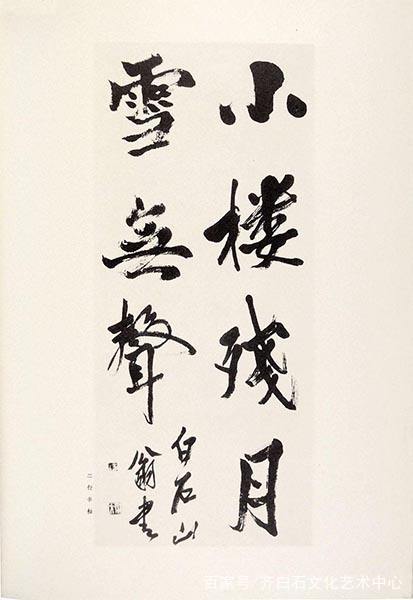 小楼残月
雪無聲
白石山
翁書
二行字軸
百家号/齐白石文化艺术中心